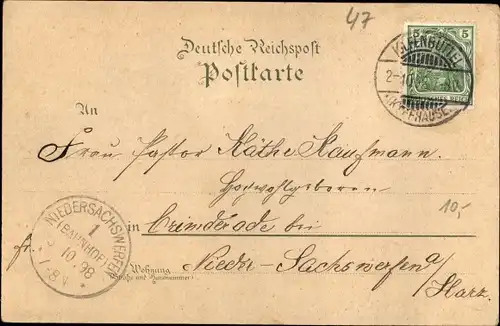 47
Deutsche Reichspost
Postkarte
5 5
KELBRA
2-10
(KYFFHÄUSER)
An
Frau Pastor Käthe Kaufmann
Hochwohlgeboren
in Crimderode bei
10,-
NIEDERSACHSWERFEN
1
(BAHNHOF)
10 98
1-8 V
fr.
Wohnung
(Straße und Hausnummer)
Nieder-Sachswerfen a/
Harz.